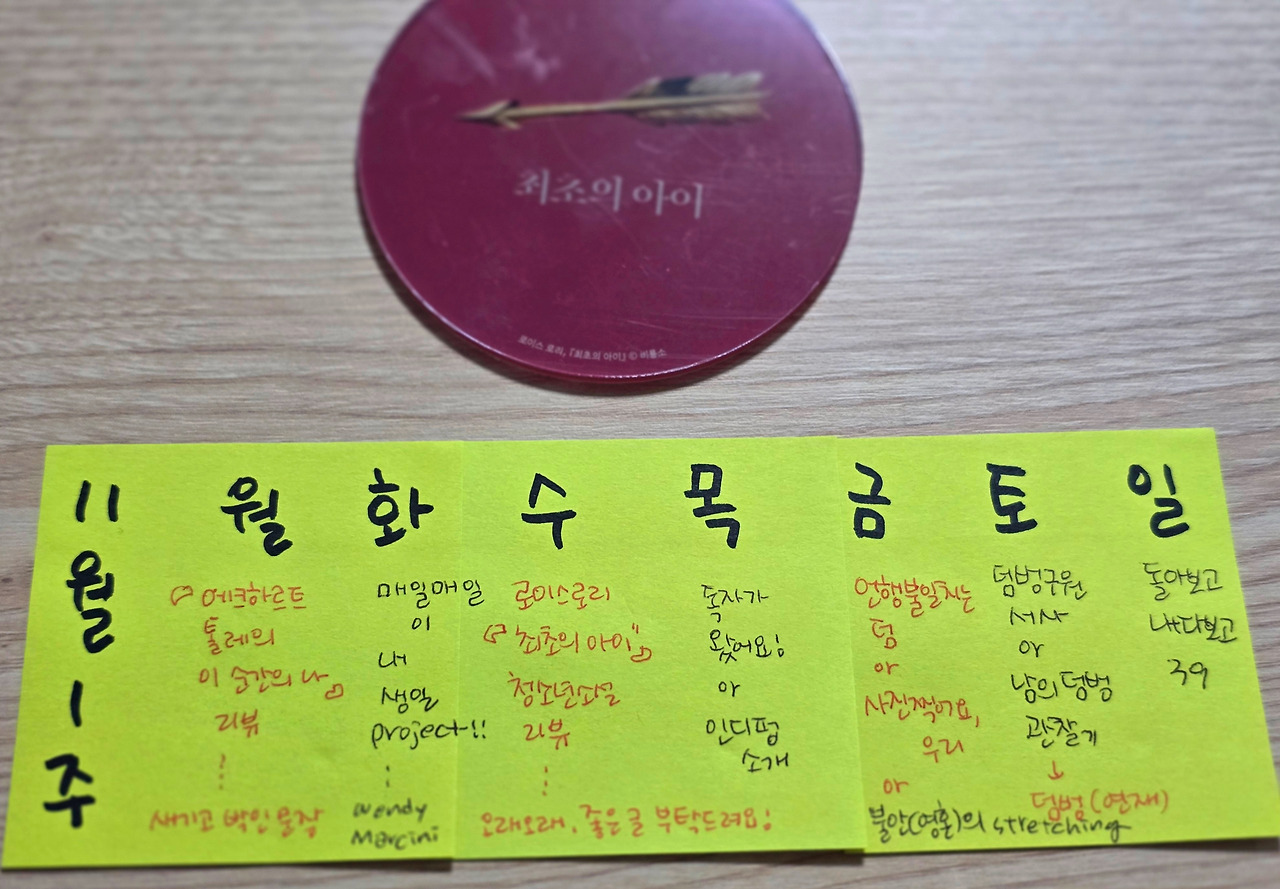 최초의 아이
로이스 로리, 『최초의 아이』 © 비룡소
11월 1주
월
『에크하르트
톨레의
이 순간의 나』
리뷰
⋮
새기고 박인 문장
화
매일매일
이
내
생일
project!!
⋮
Wendy
Marcini
수
로이스로리
『최초의 아이』
청소년소설
리뷰
⋮
오래오래, 좋은 글 부탁드려요!
목
독자가
왔어요!
or
인디펍
소개
금
언행불일치는
덤
or
사진찍어요,
우리
or
불안(영혼)의 stretching
토
덤벙구원
서사
or
남의 덤벙
관찰기
↓
덤벙(연재)
일
돌아보고
내다보고
39